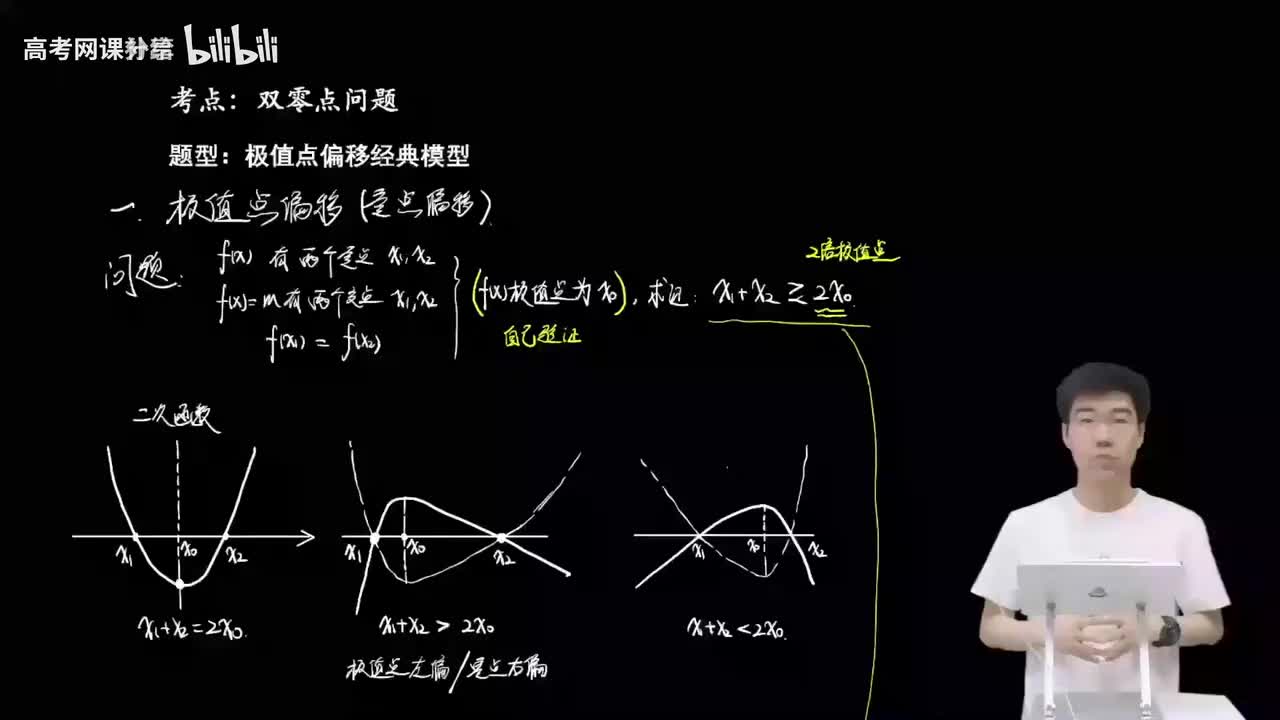 高考网课补给 bilibili
考点：双零点问题
题型：极值点偏移经典模型
一. 极值点偏移(零点偏移).
问题:
f(x) 有两个零点 x₁, x₂
f(x)=m 有两个零点 x₁, x₂
f(x₁) = f(x₂)
(f(x)极值点为 x₀), 求证: x₁+x₂ ≷ 2x₀.
2倍极值点
自己验证
二次函数
x₁ x₀ x₂
x₁ x₀ x₂
x₁ x₀ x₂
x₁+x₂=2x₀.
x₁+x₂ > 2x₀
x₁+x₂<2x₀.
极值点左偏/零点右偏